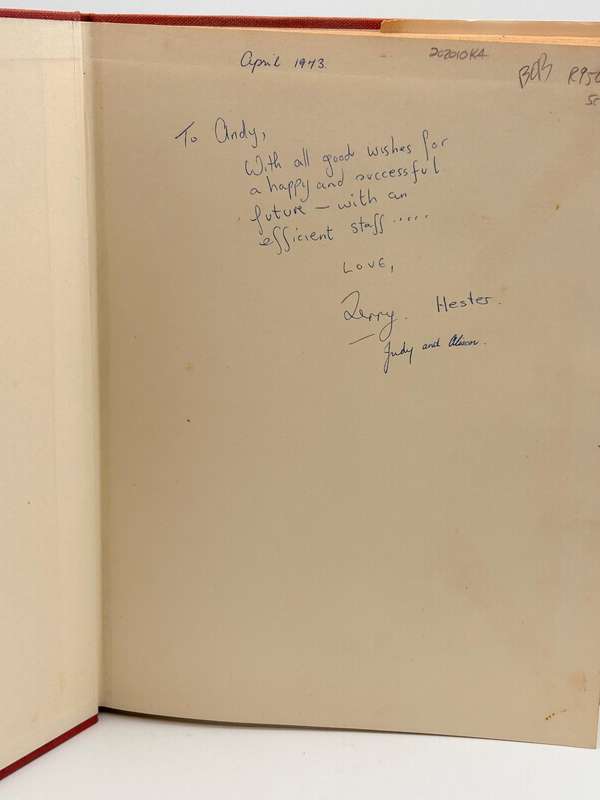 April 1973.
202010KA
To Andy,
With all good wishes for
a happy and successful
future — with an
efficient staff .....
LOVE,
Hester.
Judy and